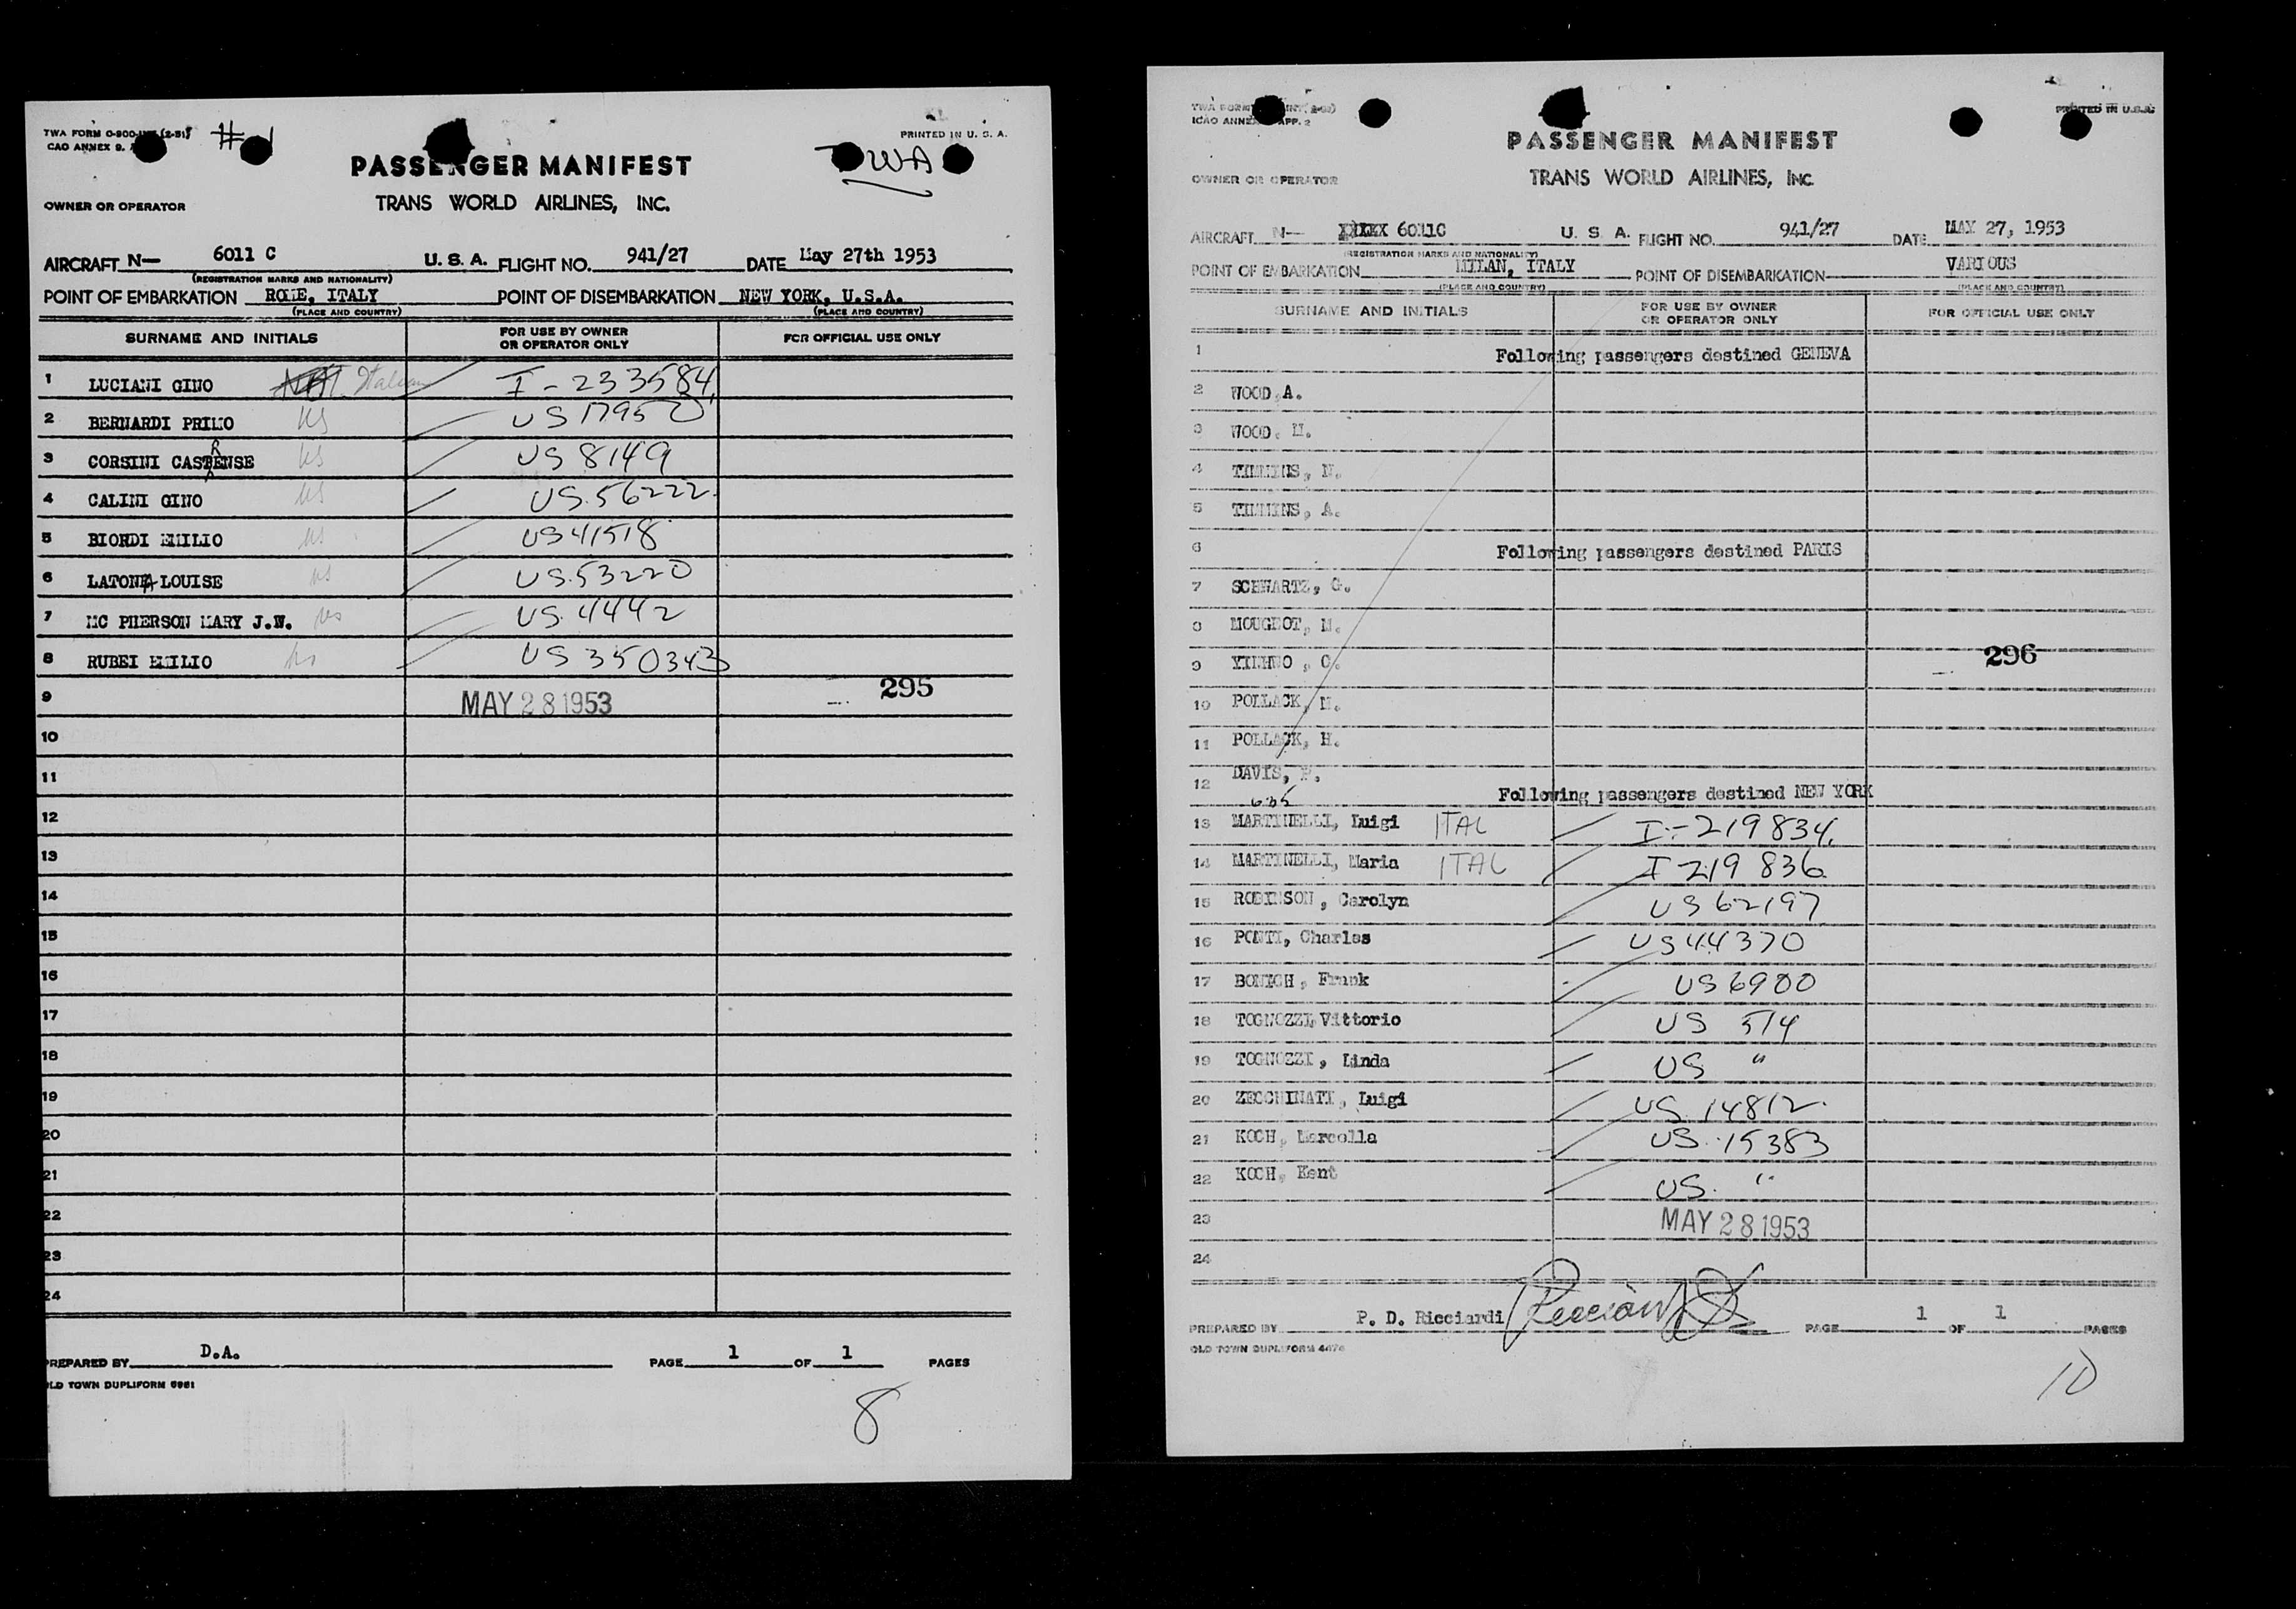 #1
TWA FORM O-800 (2-51)
CAO ANNEX 9.
PRINTED IN U. S. A.
TWA
PASSENGER MANIFEST
OWNER OR OPERATOR
TRANS WORLD AIRLINES, INC.
AIRCRAFT N— 6011 C U. S. A. FLIGHT NO. 941/27 DATE May 27th 1953
(REGISTRATION MARKS AND NATIONALITY)
POINT OF EMBARKATION ROME, ITALY POINT OF DISEMBARKATION NEW YORK, U.S.A.
(PLACE AND COUNTRY) (PLACE AND COUNTRY)
SURNAME AND INITIALS FOR USE BY OWNER OR OPERATOR ONLY FOR OFFICIAL USE ONLY
1 LUCIANI GINO Italian I-233584
2 BERNARDI PRIMO US US 17950
3 CORSINI US US 8149
4 CALINI GINO US US.56222.
5 BIORDI EMILIO US US 41518
6 LOUISE US US.53220
7 MC PHERSON MARY J.W. US US.4442
8 RUBEI EMILIO US US 350343
9 MAY 28 1953 295
10
11
12
13
14
15
16
17
18
19
20
21
22
23
24
PREPARED BY D.A. PAGE 1 OF 1 PAGES
OLD TOWN DUPLIFORM 6981
8
TWA FORM
ICAO ANNEX APP. 2
PRINTED IN U.S.A.
PASSENGER MANIFEST
OWNER OR OPERATOR
TRANS WORLD AIRLINES, INC.
AIRCRAFT N— 6011C U. S. A. FLIGHT NO. 941/27 DATE MAY 27, 1953
(REGISTRATION MARKS AND NATIONALITY)
POINT OF EMBARKATION MILAN, ITALY POINT OF DISEMBARKATION VARIOUS
(PLACE AND COUNTRY) (PLACE AND COUNTRY)
SURNAME AND INITIALS FOR USE BY OWNER OR OPERATOR ONLY FOR OFFICIAL USE ONLY
1 Following passengers destined GENEVA
2 WOOD, A.
3 WOOD, M.
4 TIMMINS, N.
5 TIMMINS, A.
6 Following passengers destined PARIS
7 SCHWARTZ, G.
8 MOUGEOT, M.
9 296
10 POLLACK, M.
11 POLLACK, H.
12 DAVIS, P.
Following passengers destined NEW YORK
13 MARTINELLI, Luigi ITAL I-219834,
14 MARTINELLI, Maria ITAL I 219 836
15 ROBINSON, Carolyn US 62197
16 PONTI, Charles US 44370
17 BONICH, Frank US 6900
18 TOGNOZZI, Vittorio US 514
19 TOGNOZZI, Linda US "
20 ZECCHINATI, Luigi US 14812.
21 KOCH, Marcella US.15383
22 KOCH, Kent US. "
23 MAY 28 1953
24
PREPARED BY P. D. Ricciardi PAGE 1 OF 1 PAGES
OLD TOWN DUPLIFORM
10